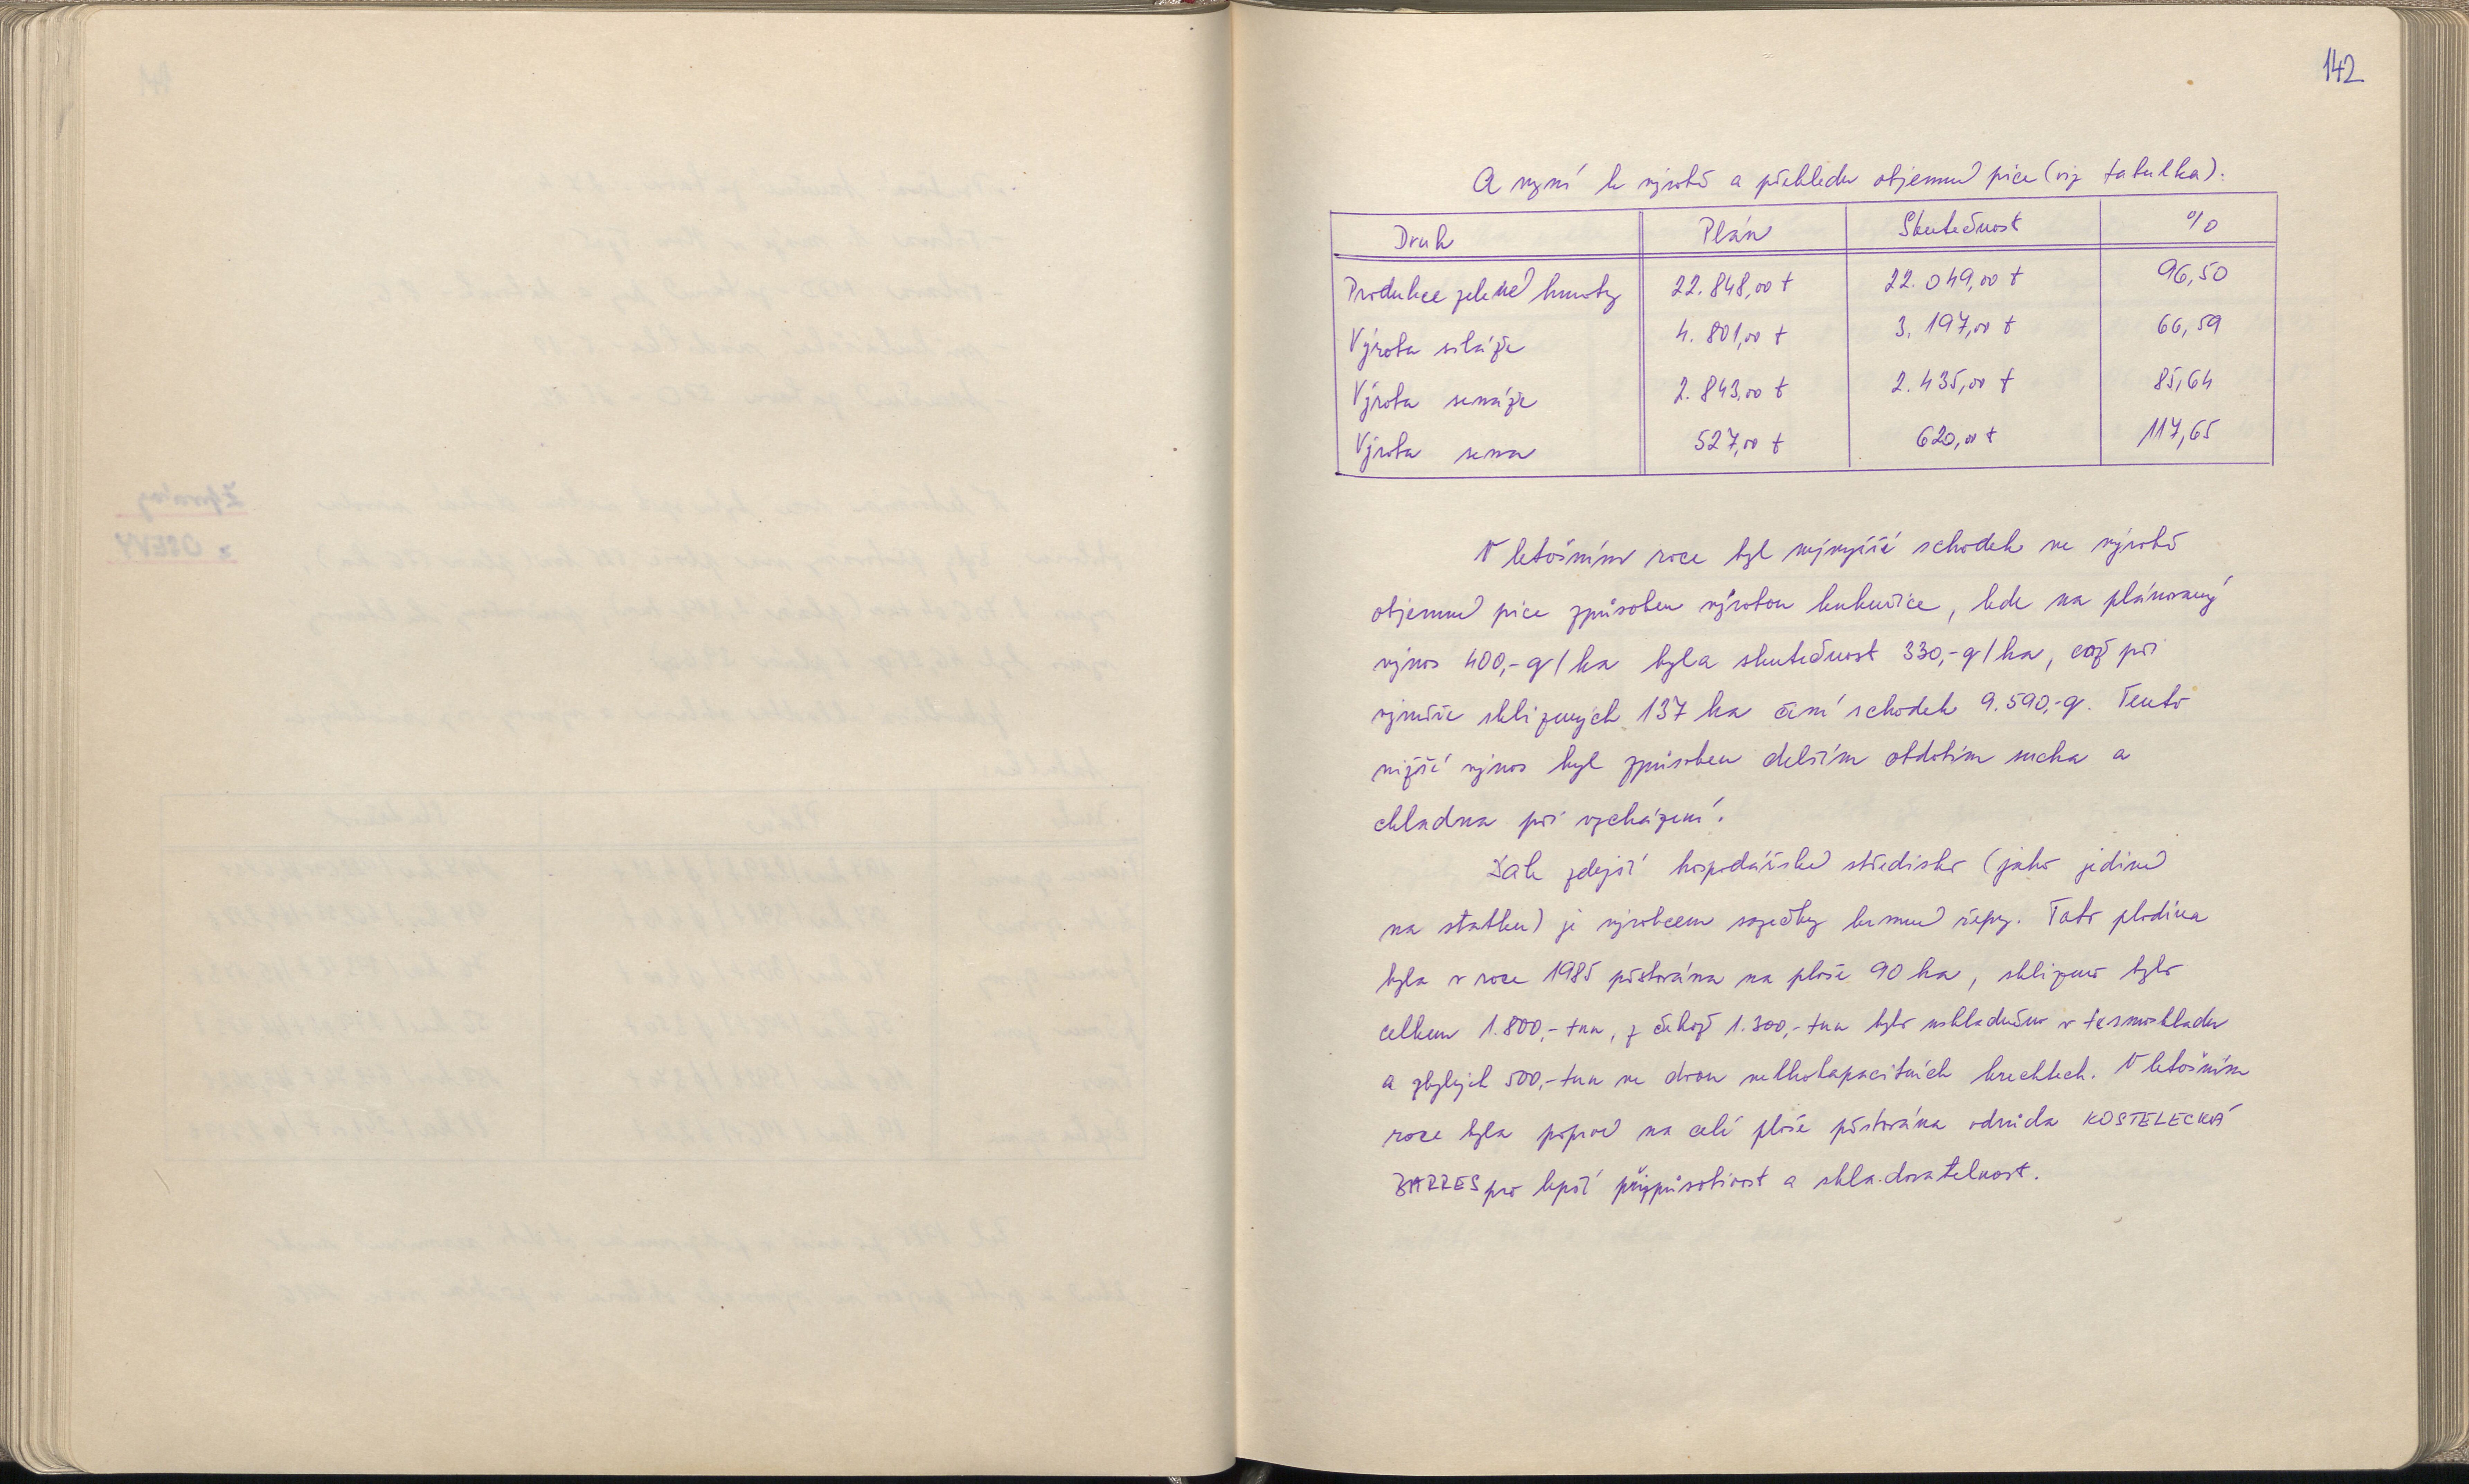 142
A nyní k výrobě a přehledu objemné píce (viz tabulka).
Druh Plán Skutečnost %
Produkce zelené hmoty 22.848,00 t 22.049,00 t 96,50
Výroba siláže 4.801,00 t 3.197,00 t 66,59
Výroba senáže 2.843,00 t 2.435,00 t 85,64
Výroba sena 527,00 t 620,00 t 117,65
V letošním roce byl nejvyšší schodek ve výrobě
objemné píce způsoben výrobou kukuřice, kde na plánovaný
výnos 400,-q/ha byla skutečnost 330,-q/ha, což při
výměře sklizených 137 ha činí schodek 9.590,-q. Tento
nižší výnos byl způsoben delším obdobím sucha a
chladna při vzcházení.
Dále zdejší hospodářské středisko (jako jediné
na statku) je výrobcem sazečky krmné řepy. Tato plodina
byla v roce 1985 pěstována na ploše 90 ha, sklizeno bylo
celkem 1.800,- tun, z čehož 1.300,- tun bylo uskladněno v termoskladu
a zbylých 500,- tun ve dvou velkokapacitních krechtech. V letošním
roce byla poprvé na celé ploše pěstována odrůda KOSTELECKÁ
BARRES pro lepší přizpůsobivost a skladovatelnost.